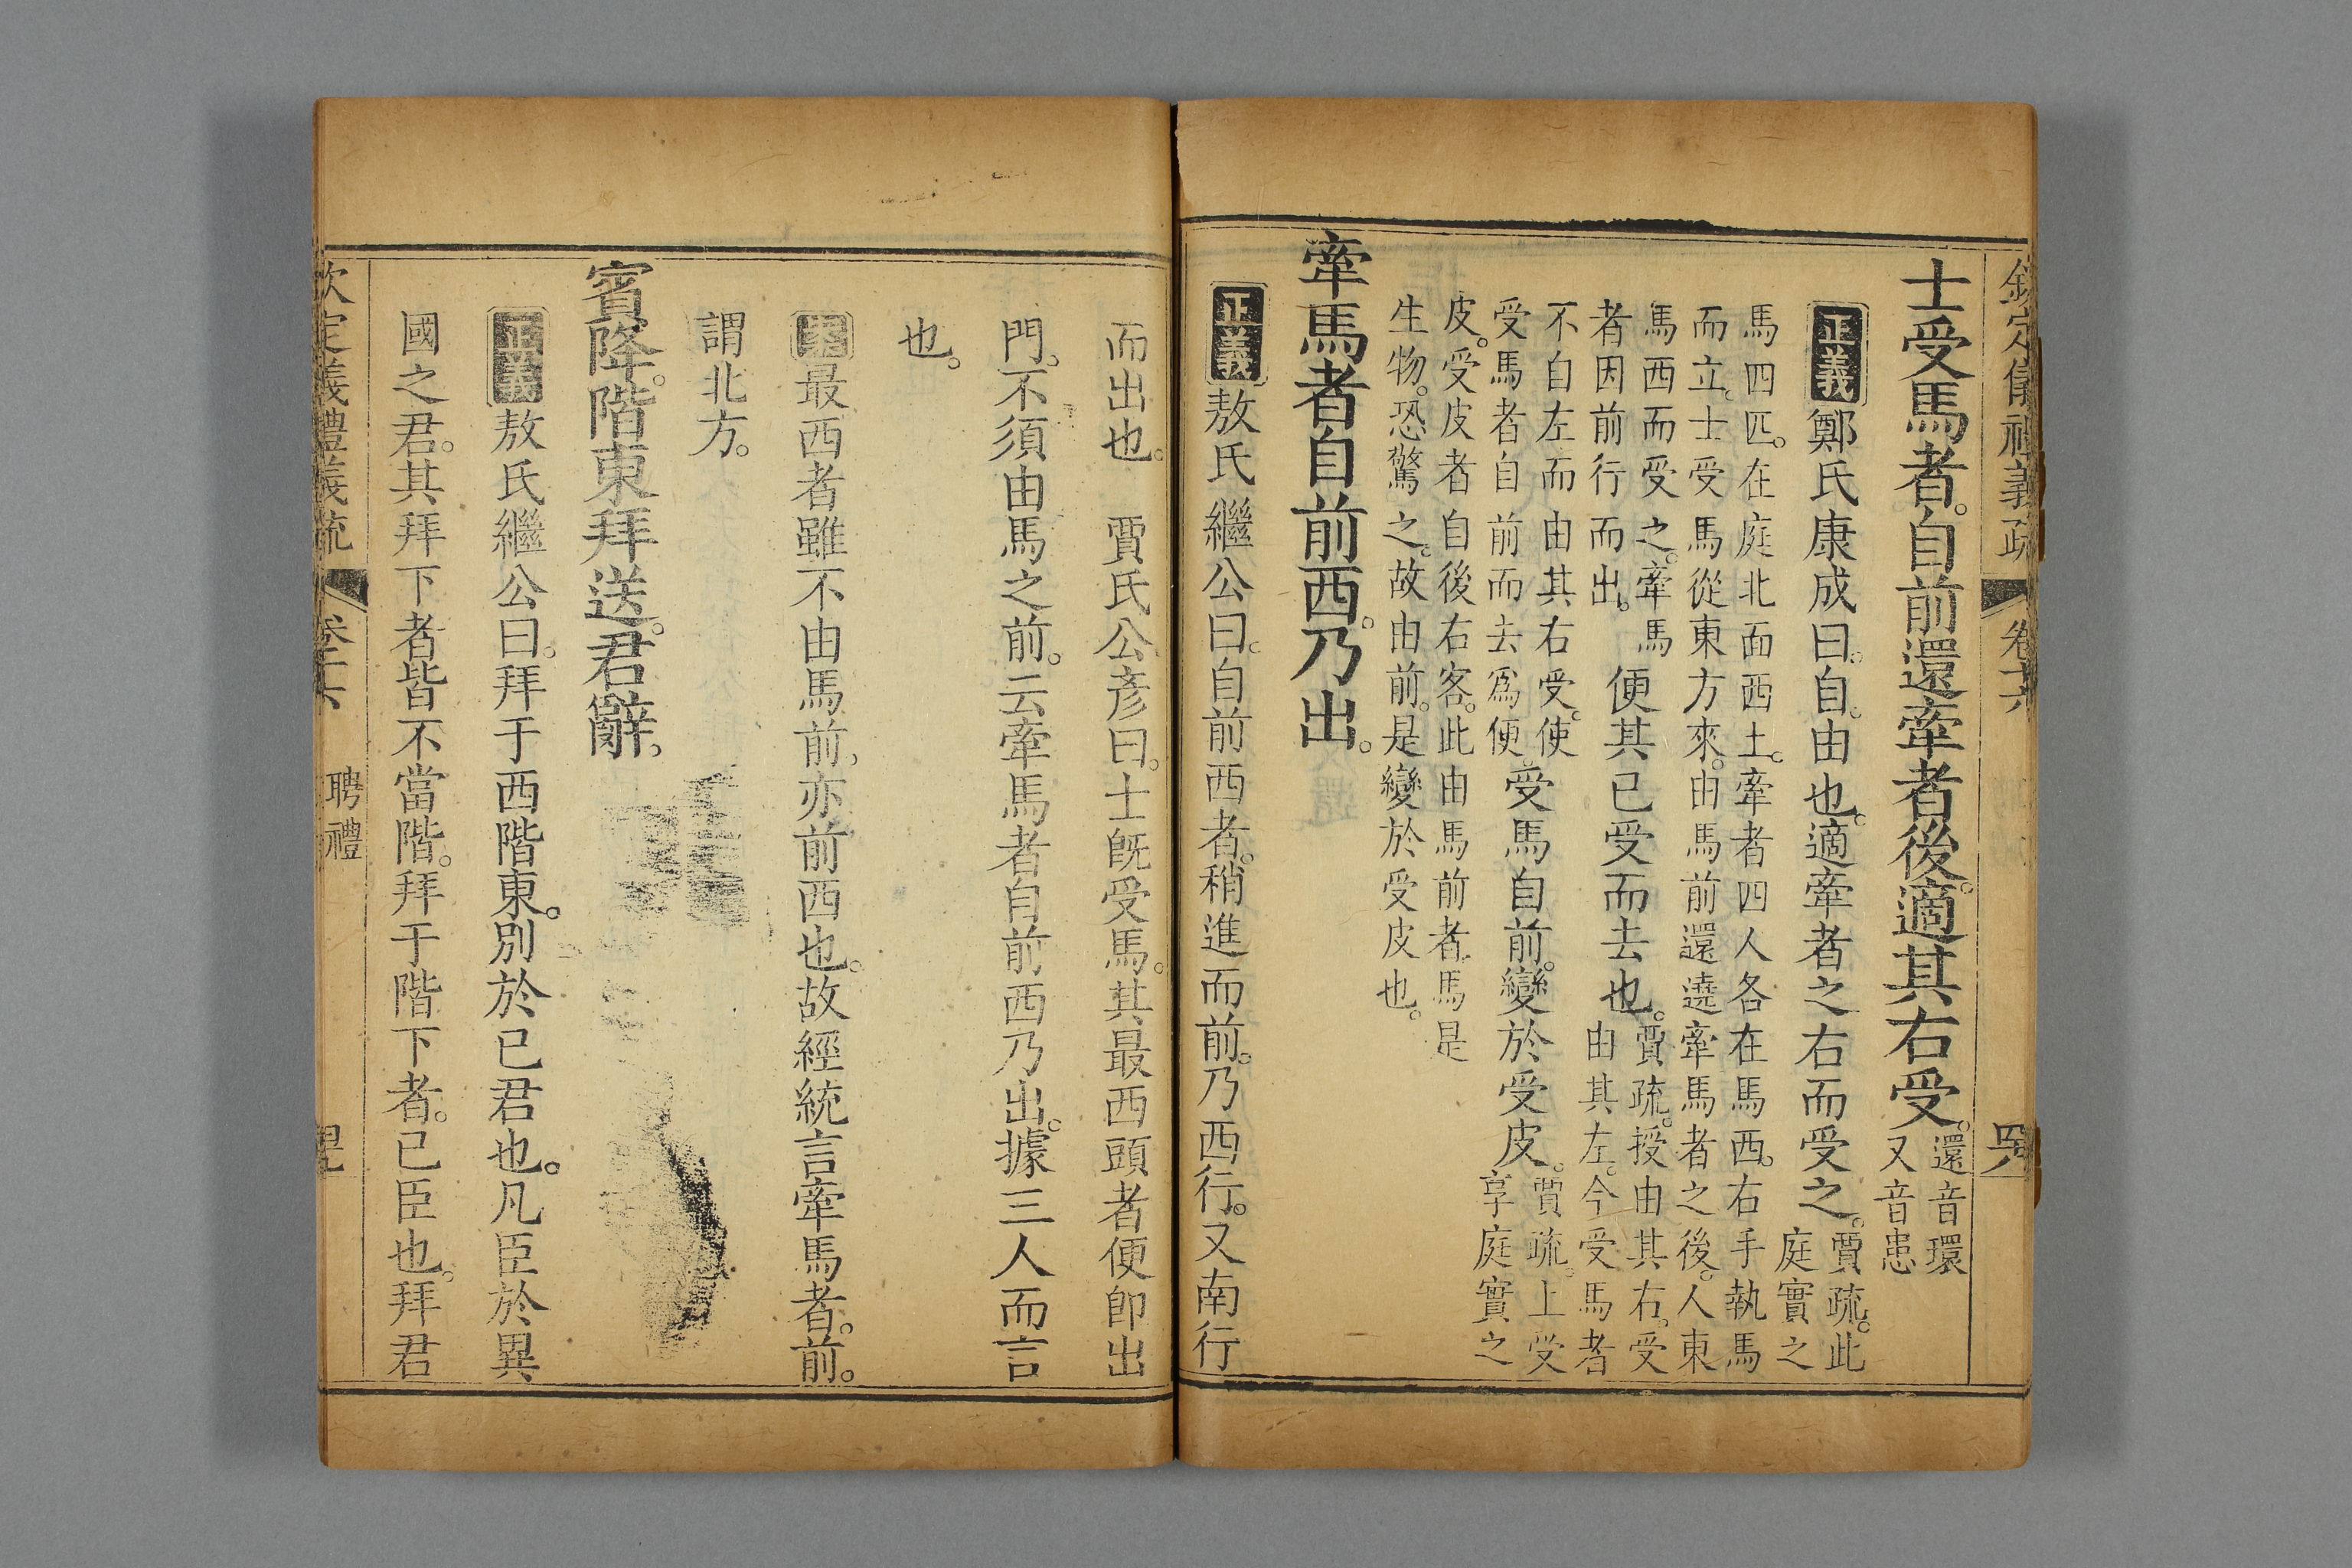 欽定儀禮義疏 卷十六 四六
士受馬者。自前還牽者後。適其右受。還音環
又音患
正義鄭氏康成曰。自。由也。適牽者之右而受之。賈疏。此
庭實之
馬四匹。在庭北面西上。牽者四人各在馬西。右手執馬
而立。士受馬從東方來。由馬前還遶牽馬者之後。人東
馬西而受之。牽馬
者因前行而出。
便其已受而去也。賈疏。授由其右。受
由其左。今受馬者
不自左而由其右受。使
受馬者自前而去爲便。
受馬自前。變於受皮。賈疏。上受
享庭實之
皮。受皮者自後右客。此由馬前者。馬是
生物。恐驚之。故由前。是變於受皮也。
牽馬者自前西。乃出。
正義敖氏繼公曰。自前西者。稍進而前。乃西行。又南行
而出也。 賈氏公彥曰。士旣受馬。其最西頭者便卽出
門。不須由馬之前。云牽馬者自前西乃出。據三人而言
也。
最西者雖不由馬前。亦前西也。故經統言牽馬者。前。
謂北方。
賓降。階東拜送。君辭。
正義敖氏繼公曰。拜于西階東。別於已君也。凡臣於異
國之君。其拜下者皆不當階。拜于階下者。已臣也。拜君
欽定義禮義疏 卷十六 聘禮